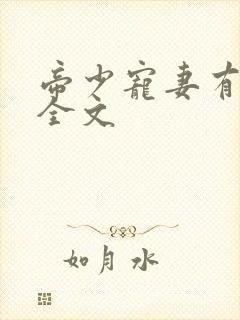 帝少宠妻有
全文
如月水